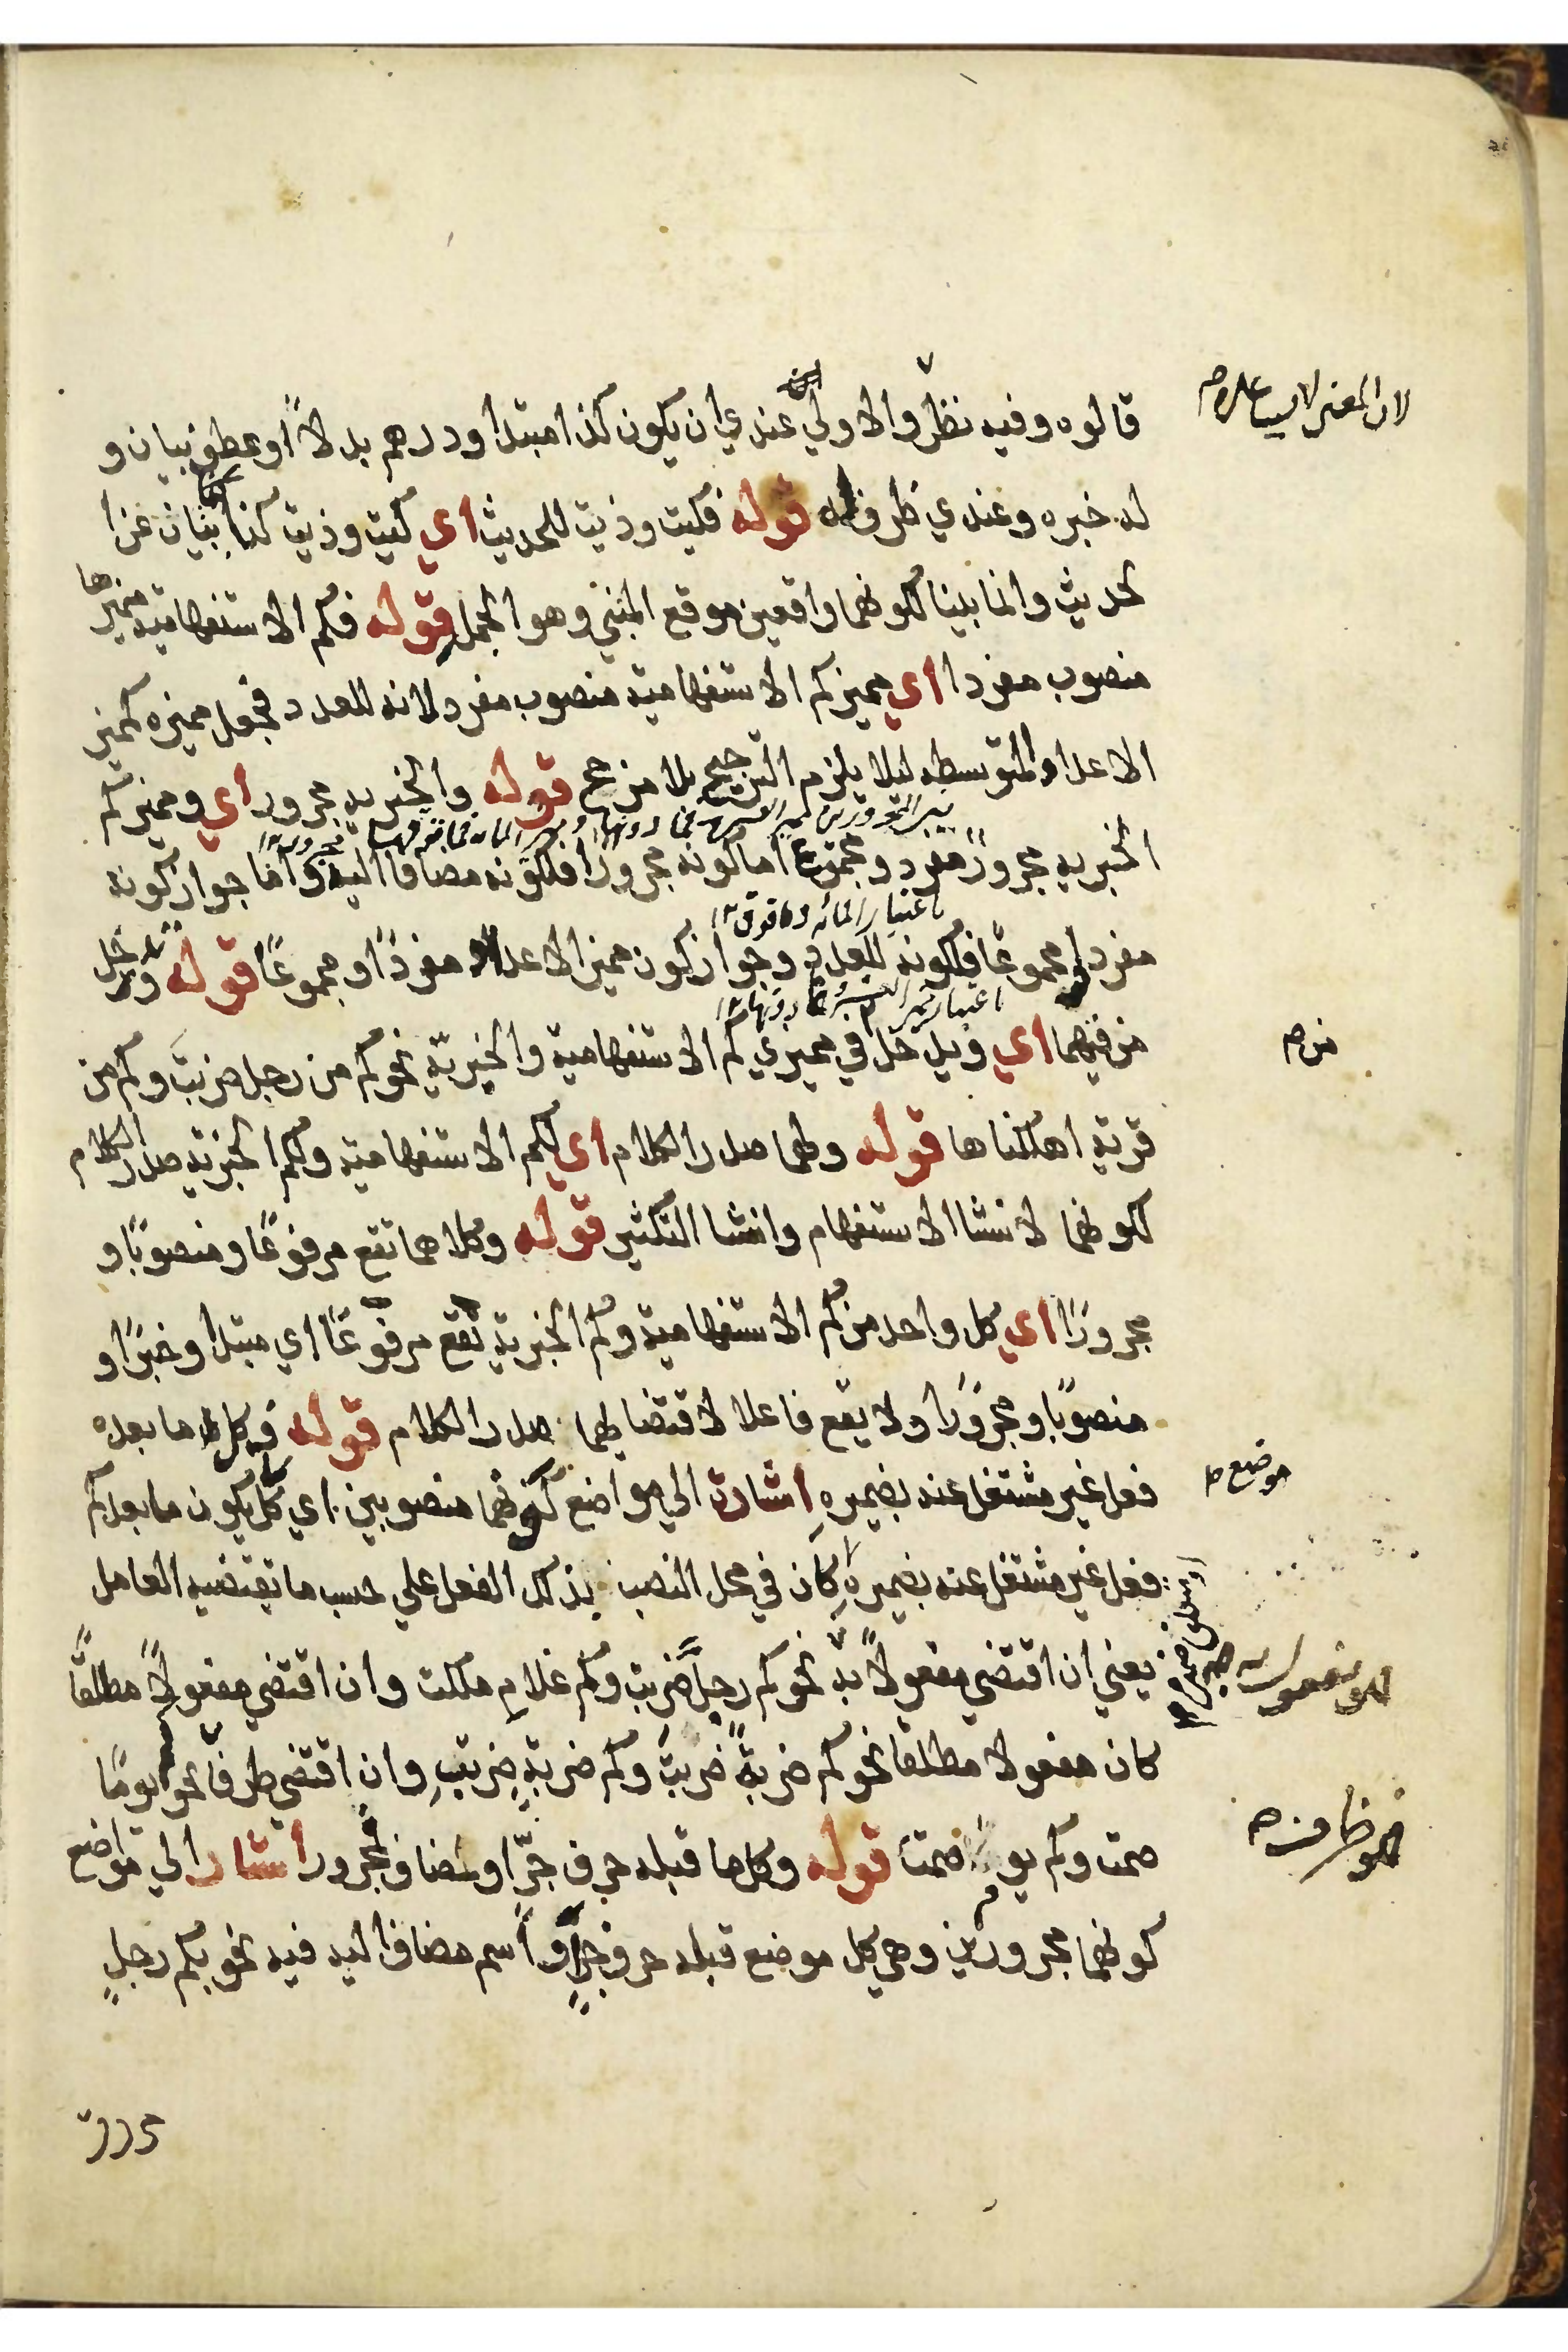 قالوه وفيه نظر والاولي عندي ان يكون كذا مبتدا ودرهم بدلا او عطف بيان و
له خبره وعندي ظرف له قوله فكيت وذيت للحديث اي كيت وذيت كنايتان عن
الحديث وانما بنيتا لكونهما واقعين موقع المبني وهو الجمل قوله فكم الاستفهامية مميزها
منصوب مفردا اي مميز كم الاستفهامية منصوب مفرد لانه للعدد فجعل مميزه كمميز
الاعداد المتوسطه ليلا يلزم الترجيح بلا مرجح قوله والخبريه مجرور اي ومميز كم
الخبريه مجرور مفرد ومجموع اما كونه مجرورا فلكونه مضافا اليه واما جواز كونه
باعتبار المائه وما فوق
مفردا ومجموعا فلكونه للعدد وجواز كون مميز الاعداد مفردا او مجموعا قوله وتدخل
من فيهما اي ويدخل في مميزي كم الاستفهامية والخبرية نحو كم من رجل ضربت وكم من
من صح
قرية اهلكناها قوله ولهما صدر الكلام اي لكم الاستفهامية ولكم الخبرية صدر الكلام
لكونهما لانشا الاستفهام وانشا التكثير قوله وكلاهما تقع مرفوعا ومنصوبا و
مجرورا اي كل واحد من كم الاستفهامية وكم الخبرية تقع مرفوعا اي مبتدا وخبرا و
منصوبا ومجرورا ولا يقع فاعلا لاقتضايهما صدر الكلام قوله فكل ما بعده
فعل غير مشتغل عنه بضميره اشارة الي مواضع كونهما منصوبين اي كل يكون ما بعد كم
موضع
فعل غير مشتغل عنه بضميره كان في محل النصب بذلك الفعل علي حسب ما يقتضيه العامل
يعني ان اقتضي مفعولا به نحو كم رجلا ضربت وكم غلام ملكت وان اقتضي مفعولا مطلقا
كان مفعولا مطلقا نحو كم ضربة ضربت وكم ضربة ضربت وان اقتضي ظرفا نحو يوما
صمت وكم يوم صمت قوله وكل ما قبله حرف جر او مضاف فمجرور اشار الي مواضع
كونهما مجرورين وهي كل موضع قبله حرف جر او اسم مضافا اليه فيه نحو بكم رجل